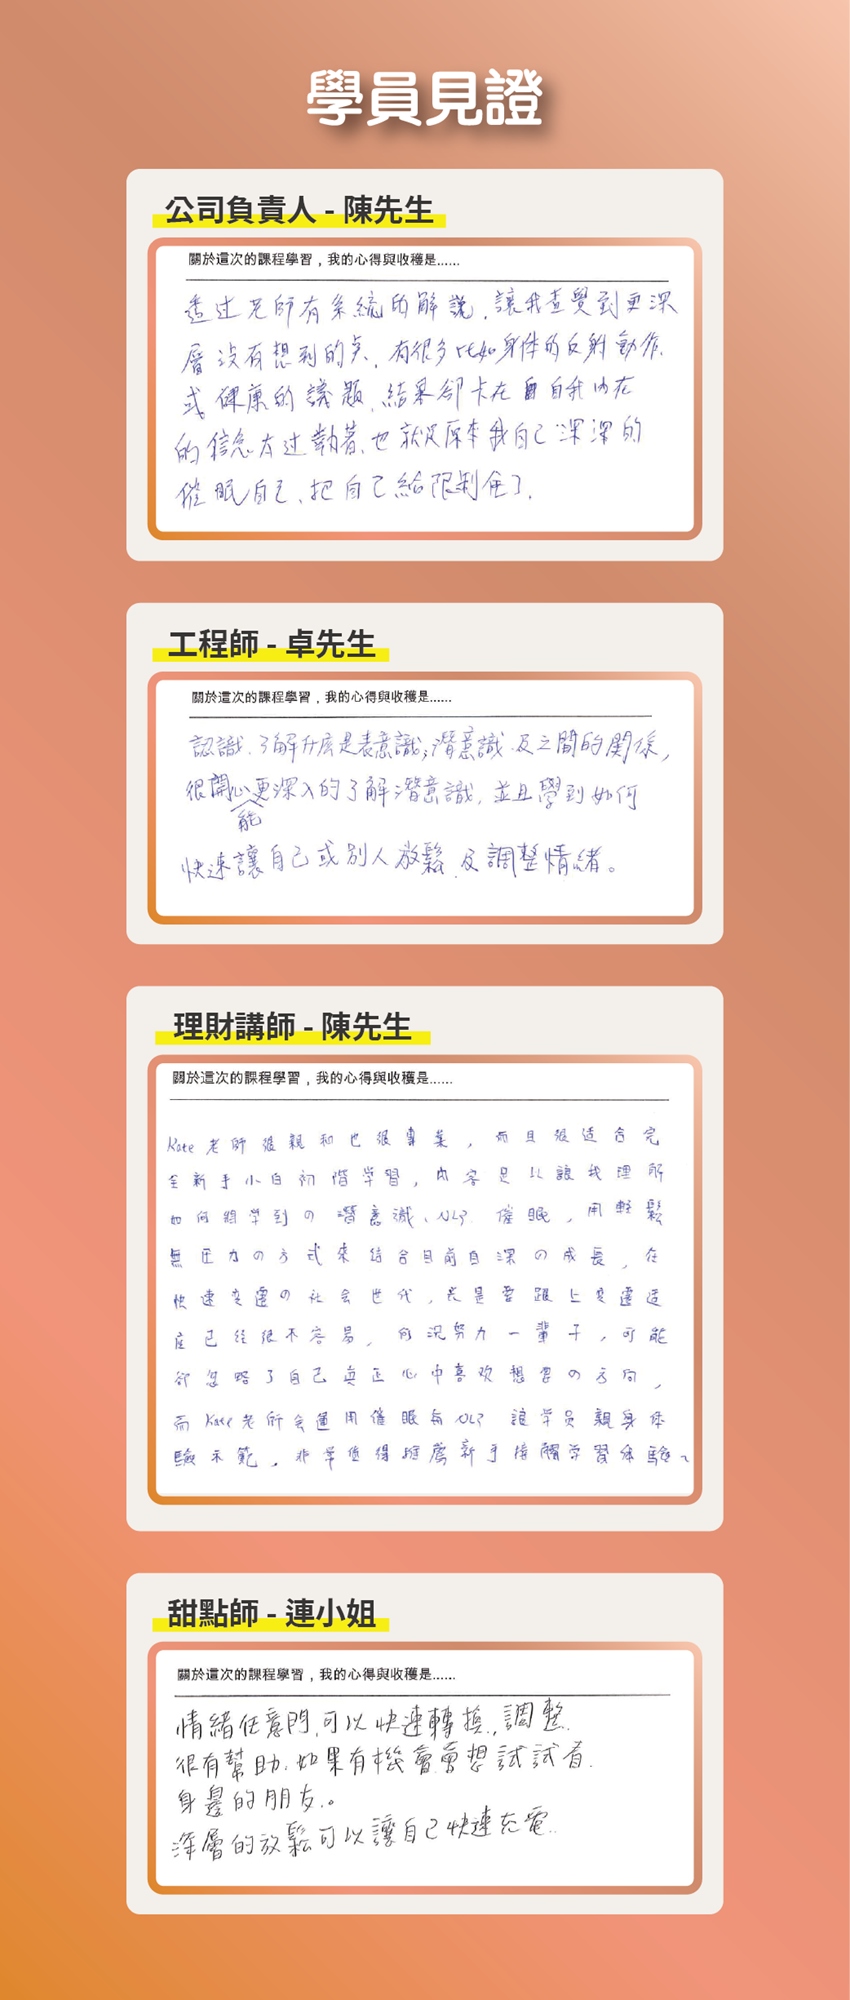 學員見證
公司負責人 - 陳先生
關於這次的課程學習，我的心得與收穫是......
透过老師有系統的解說，讓我查覺到更深
層沒有想到的点，有很多比如身体的反射動作、
或健康的議題，結果卻卡在自我内在
的信念太过執著，也就是原來我自己深深的
催眠自己、把自己給限制住了.
工程師 - 卓先生
關於這次的課程學習，我的心得與收穫是......
認識.了解什麼是表意識;潛意識.及之間的関係，
很開心更深入的了解潛意識，並且學到如何
能
快速讓自己或別人放鬆.及調整情緒。
理財講師 - 陳先生
關於這次的課程學習，我的心得與收穫是......
Kate老師很親和也很專業，而且很适合完
全新手小白初階学習，内容是以讓我理解
如何学到の潛意識、NLP.催眠，用輕鬆
無压力の方式來結合目前自深の成長，在
快速变遷の社会世代，老是要跟上变遷速
度已经很不容易，何況努力一輩子，可能
卻忽略了自己真正心中喜欢想要の方向，
而Kate老師会運用催眠和NLP讓学员親身体
驗示範，非常值得推薦新手接觸学習体驗~
甜點師 - 連小姐
關於這次的課程學習，我的心得與收穫是......
情緒任意門,可以快速轉換..調整.
很有幫助.如果有機會會想試試看.
身邊的朋友..。
深層的放鬆可以讓自己快速充電..